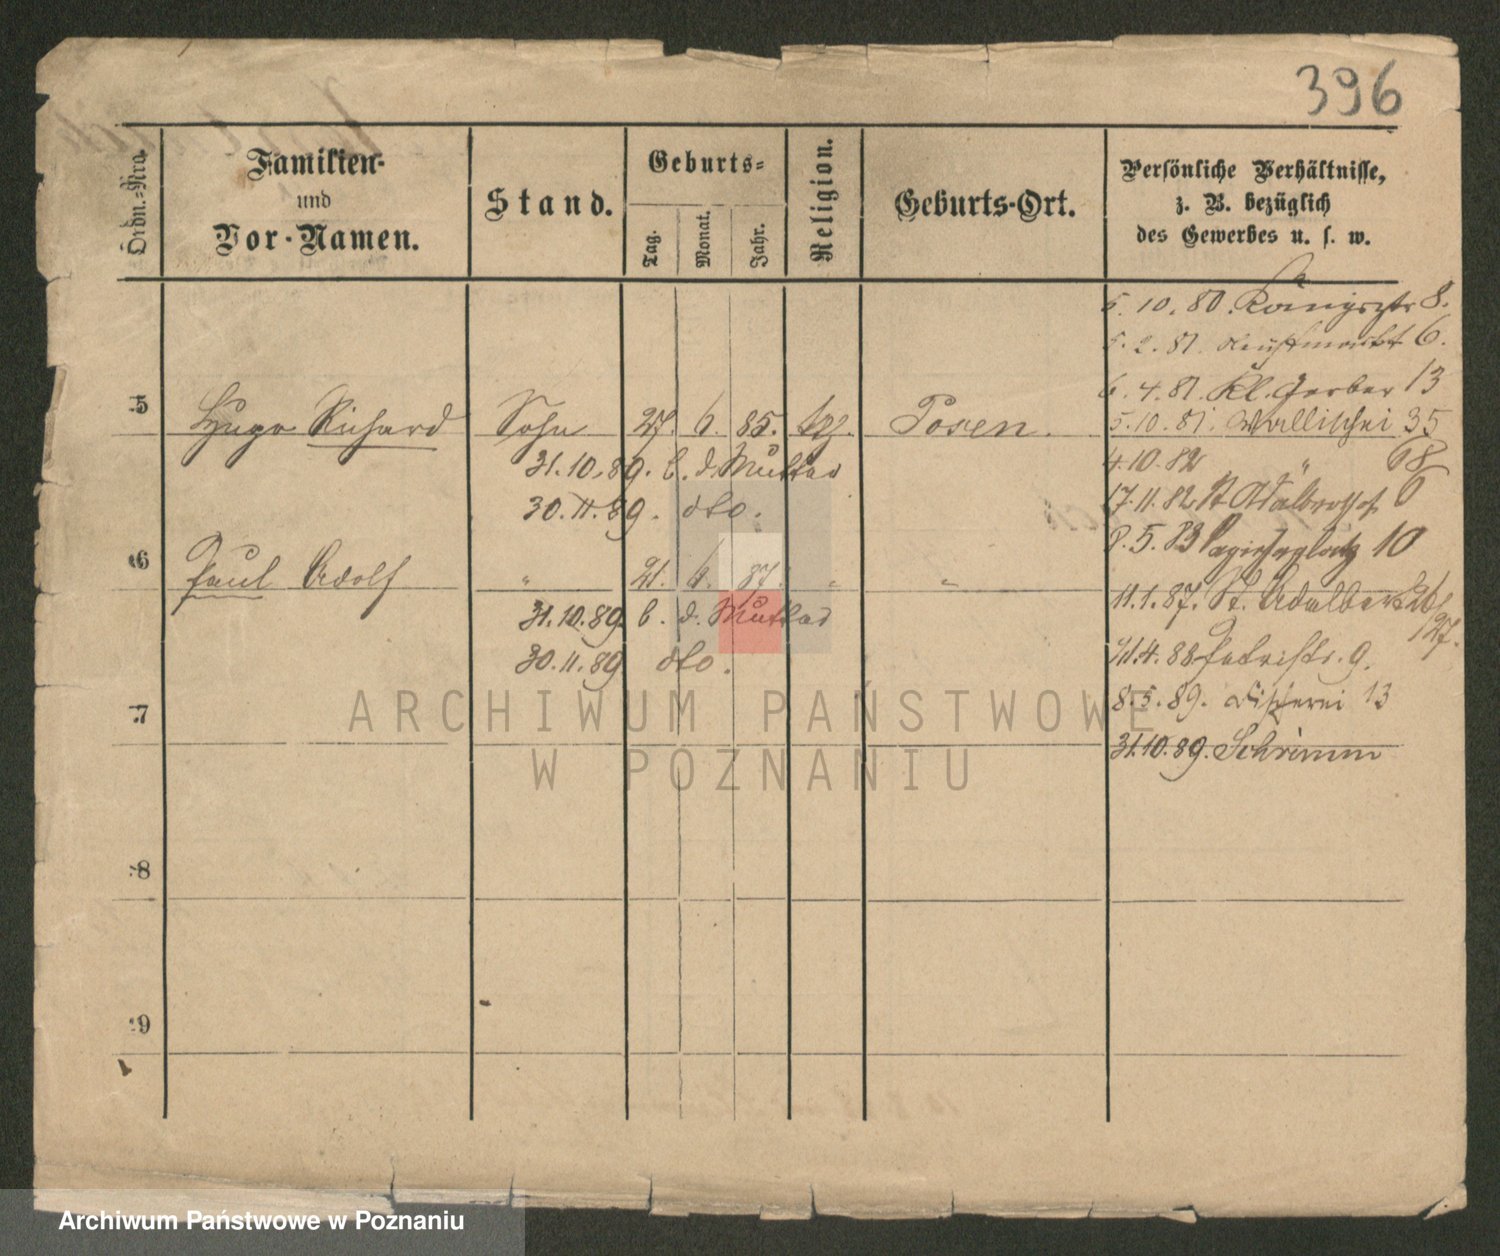 396
Ordn.-Nro.
Familien-
und
Vor-Namen.
Stand.
Geburts-
Tag.
Monat.
Jahr.
Religion.
Geburts-Ort.
Persönliche Verhältnisse,
z. B. bezüglich
des Gewerbes u. s. w.
5. 10. 80. Königsstr 8.
5. 2. 81. Neustmarkt 6.
6. 4. 81. Kl. Gerber 13
5 Hugo Richard Sohn 27. 6. 85. Posen.
5. 10. 81. Wallischei 35
31. 10. 89. b. d. Mutter
4. 10. 82 " 68
30. 11. 89. dto.
17. 11. 82 St Adalbertstr 6
8. 5. 83 10
6 Paul Adolf " 21. 6. 87. " "
11. 1. 87. St. Adalbert 26/27.
31. 10. 89. b. d. Mutter
30. 11. 89 dto.
21. 4. 88 Petristr. 9.
8. 5. 89. Fischerei 13
7
31. 10. 89. Schrimm
8
9
ARCHIWUM PAŃSTWOWE
W POZNANIU
Archiwum Państwowe w Poznaniu